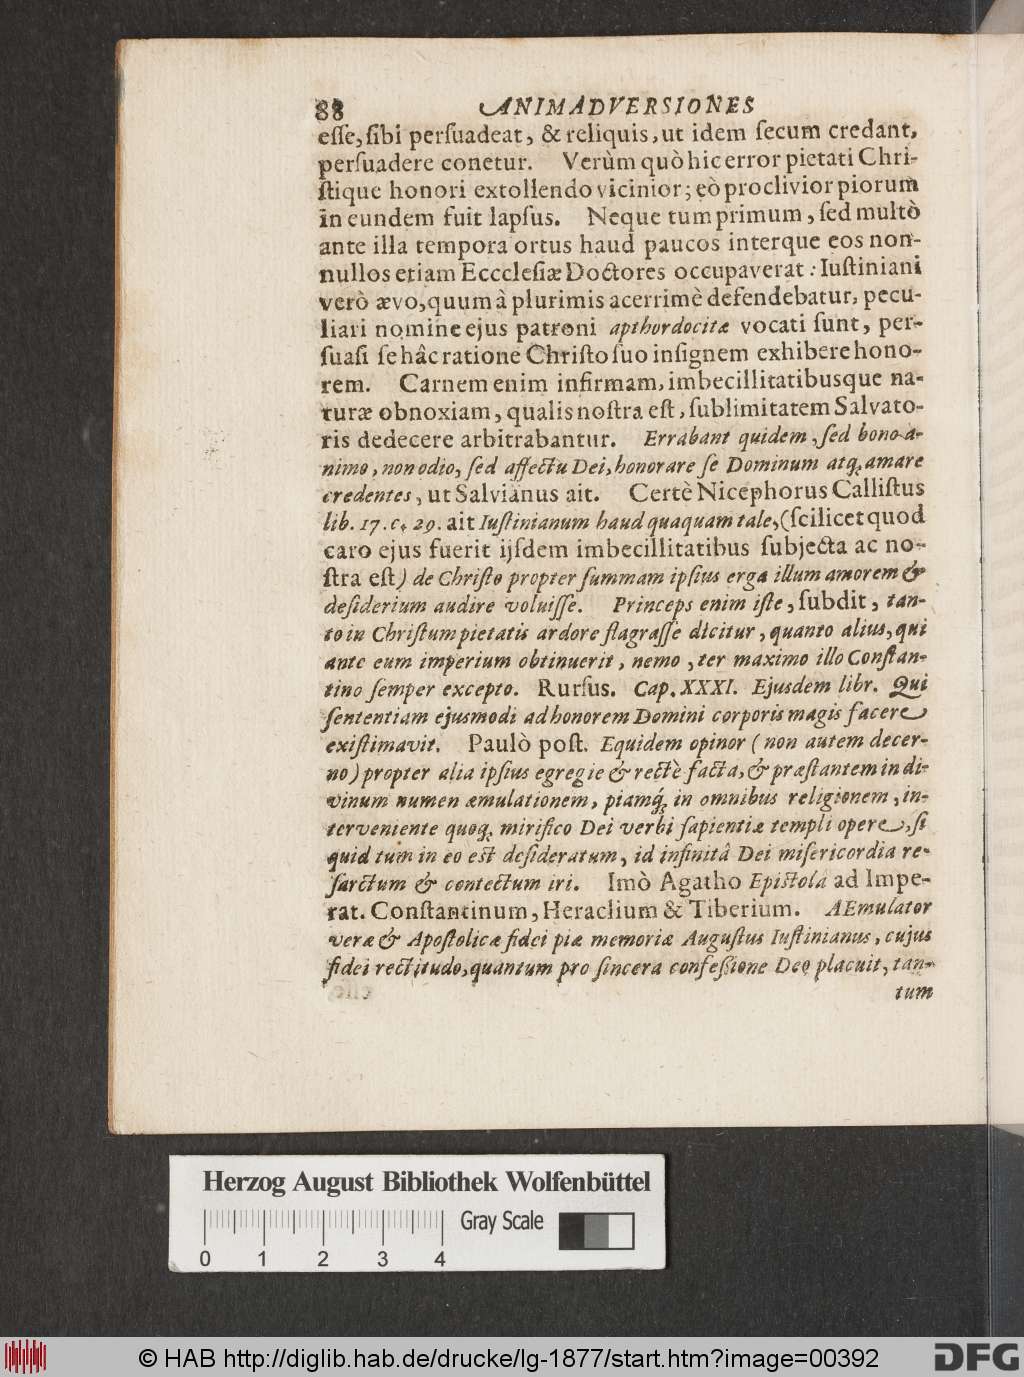 88 ANIMADVERSIONES
eſſe, ſibi perſuadeat, & reliquis, ut idem ſecum credant,
perſuadere conetur. Verùm quò hic error pietati Chri-
ſtique honori extollendo vicinior; eò proclivior piorum
in eundem fuit lapſus. Neque tum primum, ſed multò
ante illa tempora ortus haud paucos interque eos non-
nullos etiam Ecccleſiæ Doctores occupaverat: Iuſtiniani
verò ævo, quum â plurimis acerrimè defendebatur, pecu-
liari nomine ejus patroni apthordocitæ vocati ſunt, per-
ſuaſi ſe hâc ratione Chriſto ſuo inſignem exhibere hono-
rem. Carnem enim infirmam, imbecillitatibusque na-
turæ obnoxiam, qualis noſtra eſt, ſublimitatem Salvato-
ris dedecere arbitrabantur. Errabant quidem, ſed bono a-
nimo, non odio, ſed affectu Dei, honorare ſe Dominum atq; amare
credentes, ut Salvianus ait. Certè Nicephorus Calliſtus
lib. 17. c. 29. ait Iuſtinianum haud quaquam tale, (ſcilicet quod
caro ejus fuerit ijſdem imbecillitatibus ſubjecta ac no-
ſtra eſt) de Chriſto propter ſummam ipſius erga illum amorem &
deſiderium audire voluiſſe. Princeps enim iſte, ſubdit, tan-
to in Chriſtum pietatis ardore flagraſſe dicitur, quanto alius, qui
ante eum imperium obtinuerit, nemo, ter maximo illo Conſtan-
tino ſemper excepto. Rurſus. Cap. XXXI. Ejusdem libr. Qui
ſententiam ejusmodi ad honorem Domini corporis magis facere
exiſtimavit. Paulò poſt. Equidem opinor (non autem decer-
no) propter alia ipſius egregie & rectè facta, & præſtantem in di-
vinum numen æmulationem, piamq́; in omnibus religionem, in-
terveniente quoq; mirifico Dei verbi ſapientiæ templi opere, ſi
quid tum in eo eſt deſideratum, id infinitâ Dei miſericordia re-
ſarctum & contectum iri. Imò Agatho Epiſtolâ ad Impe-
rat. Conſtantinum, Heraclium & Tiberium. AEmulator
veræ & Apoſtolicæ fidei piæ memoriæ Auguſtus Iuſtinianus, cujus
fidei rectitudo, quantum pro ſincera confeſſione Deo placuit, tan-
tum
Herzog August Bibliothek Wolfenbüttel
Gray Scale
0 1 2 3 4
© HAB http://diglib.hab.de/drucke/lg-1877/start.htm?image=00392
DFG